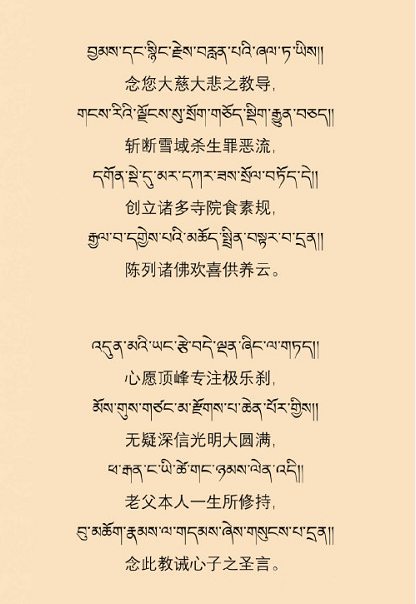 བྱམས་དང་སྙིང་རྗེས་བརླན་པའི་ཞལ་ཏ་ཡིས།།
念您大慈大悲之教导,
གངས་རིའི་ལྗོངས་སུ་སྲོག་གཅོད་སྡིག་རྒྱུན་བཅད།།
斩断雪域杀生罪恶流,
དགོན་སྡེ་དུ་མར་དཀར་ཟས་སྲོལ་བཏོད་དེ།།
创立诸多寺院食素规,
རྒྱལ་བ་དགྱེས་པའི་མཆོད་སྤྲིན་བསྟར་བ་དྲན།།
陈列诸佛欢喜供养云。
འདུན་མའི་ཡང་རྩེ་བདེ་ལྡན་ཞིང་ལ་གཏད།།
心愿顶峰专注极乐刹,
མོས་གུས་གཙང་མ་རྫོགས་པ་ཆེན་པོར་གྱིས།།
无疑深信光明大圆满,
ཕ་རྒན་ང་ཡི་ཚེ་གང་ཉམས་ལེན་འདི།།
老父本人一生所修持,
བུ་མཆོག་རྣམས་ལ་གདམས་ཞེས་གསུངས་པ་དྲན།།
念此教诫心子之圣言。